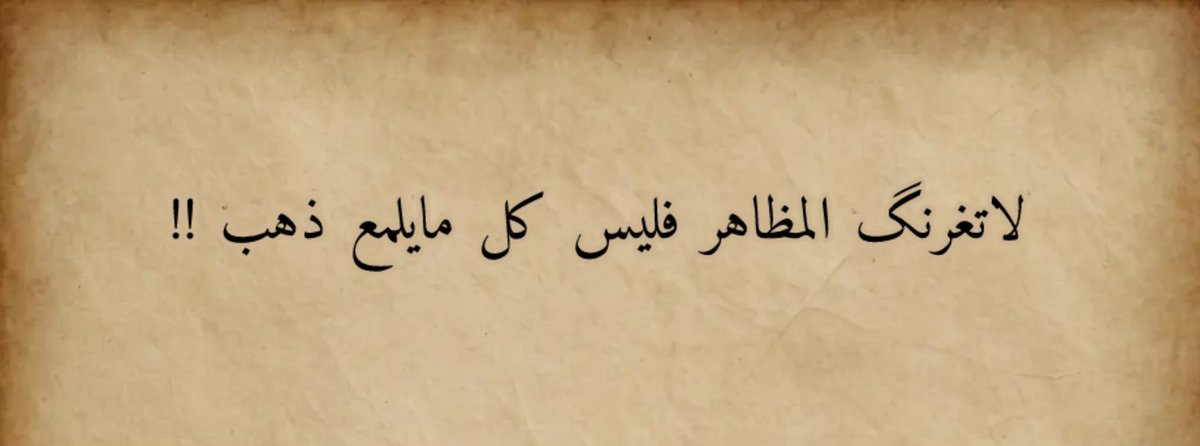 لاتغرنگ المظاهر فليس كل مايلمع ذهب !!